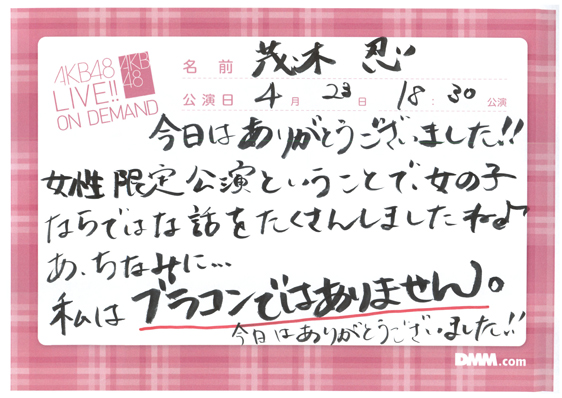 AKB48
LIVE!!
ON DEMAND
AKB
48
名前 茂木 忍
公演日 4月 23日 18:30 公演
今日はありがとうございました!!
女性限定公演ということで、女の子
ならではな話をたくさんしましたね♪
あ、ちなみに...
私はブラコンではありません。
今日はありがとうございました!!
DMM.com